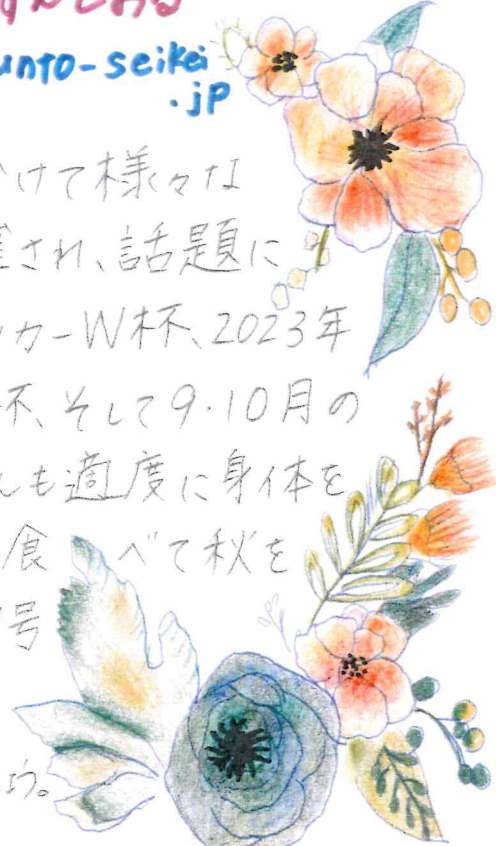 unto-seikei
.jp
けて様々な
され、話題に
カーW杯、2023年
杯、そして9・10月の
も適度に身体を
食べて秋を
号
う。